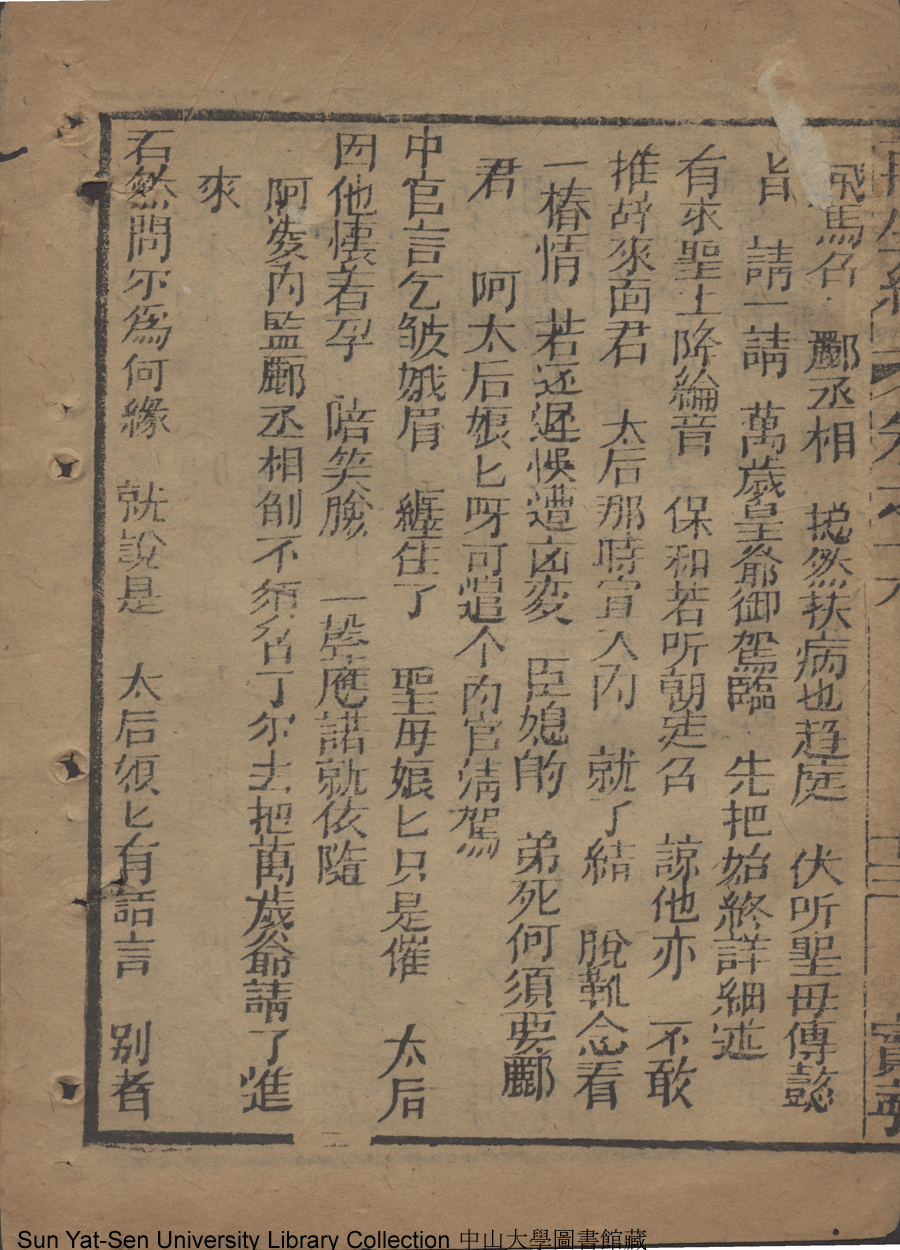 飛馬召 酈丞相 挽然扶病也趋庭 伏听聖母傳懿
旨 請一請 萬歲皇爺御駕臨 先把始終詳細述
有求聖上降綸音 保和若听朝走召 諒他亦 不敢
推故來面君 太后那時宣入內 就了結 脫靴念看
一椿情 若还遲悞遭凶変 臣媳的 弟死何須要酈
君 阿太后娘匕呀可遣个內官請駕
中官言乞皱娥眉 纏住了 聖母娘匕只是催 太后
因他懷着孕 陪笑臉 一聲應諾就依隨
阿凌內監酈丞相削不須召了尔去把萬歲爺請了進
來
若然問尔為何緣 就說是 太后娘匕有話言 别者
再生緣
十三
Sun Yat-Sen University Library Collection 中山大學圖書館藏